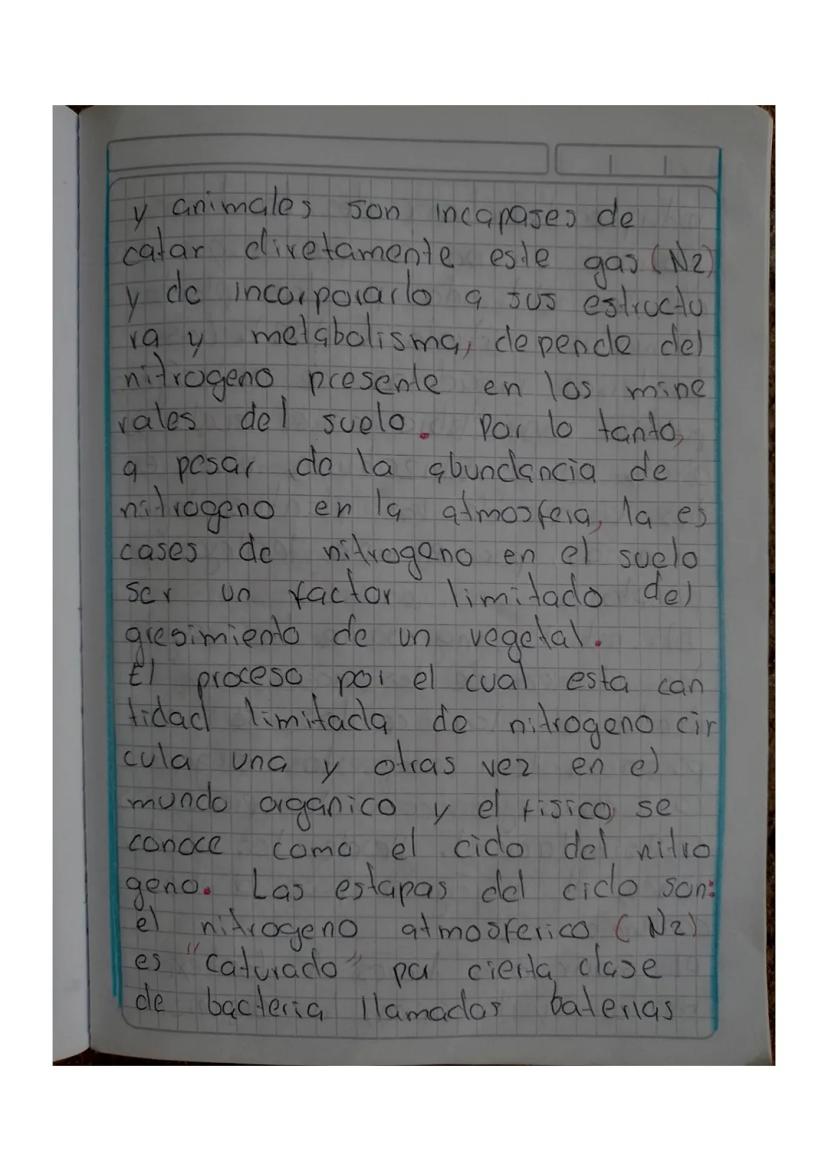 y animales son incapases de
catar diretamente este gas (N2)
y de incorporarlo a sus estructu
ra y metabolisma, depende del
nitrogeno presente en los mine
rales del suelo. Por lo tanto,
a pesar de la abundancia de
nitrogeno en la atmosfera, la es
cases de nitrogeno en el suelo
ser un factor limitado del
gresimiento de un vegetal.
El proceso por el cual esta can
tidad limitada de nitrogeno cir
cula una y otras vez en el
mundo organico y el fisico se
conoce como el ciclo del nitro
geno. Las estapas del ciclo son:
el nitrogeno atmosferico (N2)
es "caturado" pa cierta clase
de bacteria llamados baterias